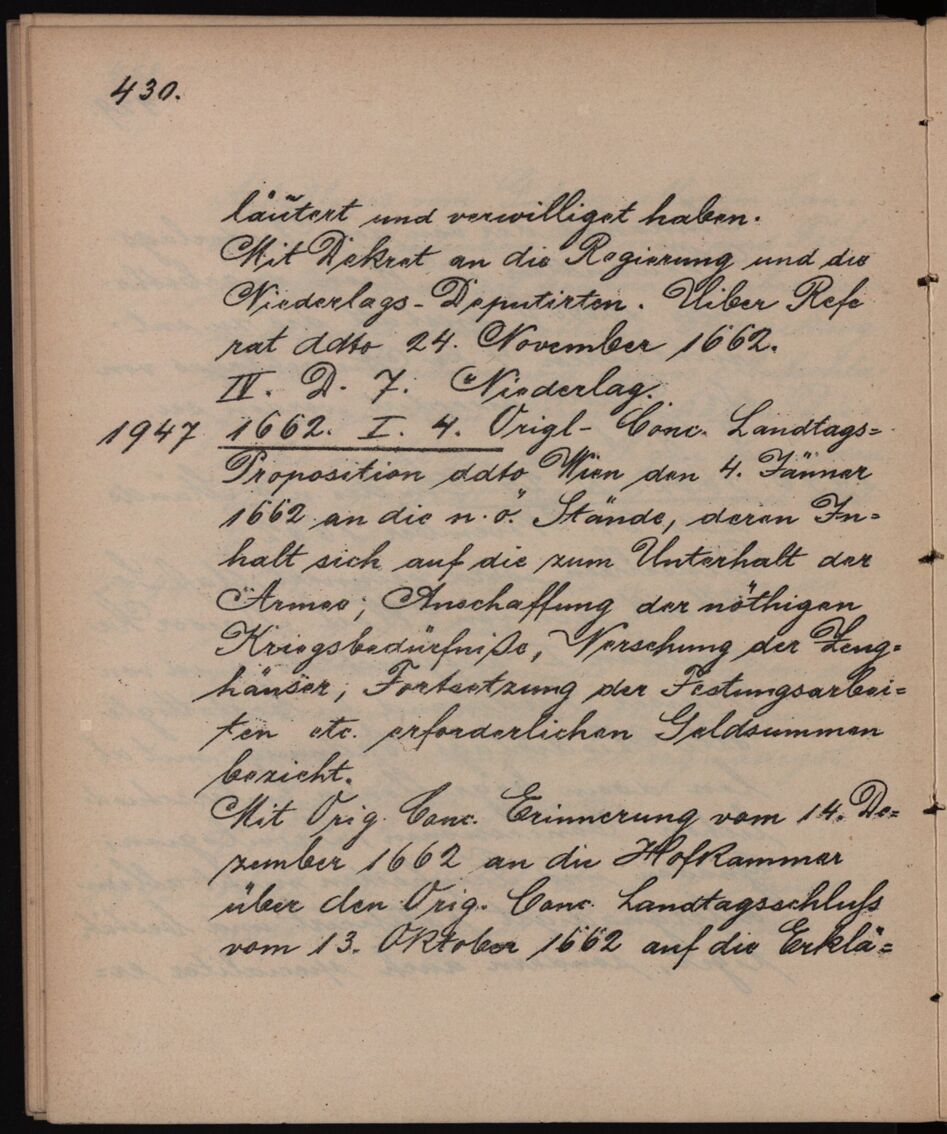 430.
läutert und verwilliget haben.
Mit Dekret an die Regierung und die
Niederlags-Deputirten. Uiber Refe
rat ddto 24. November 1662.
IV. D. 7. Niederlag.
1947 1662. I. 4. Origl- Conc. Landtags=
Proposition ddto Wien den 4. Jänner
1662 an die n. ö. Stände, deren In=
halt sich auf die zum Unterhalt der
Armee, Anschaffung der nöthigen
Kriegsbedürfniße, Versehung der Zeug=
häuser, Fortsetzung der Festungsarbei=
ten etc. erforderlichen Geldsummen
bezieht.
Mit Orig. Conc. Erinnerung vom 14. De=
zember 1662 an die Hofkammer
über den Orig. Conc. Landtagsschluß
vom 13. Oktober 1662 auf die Erklä=